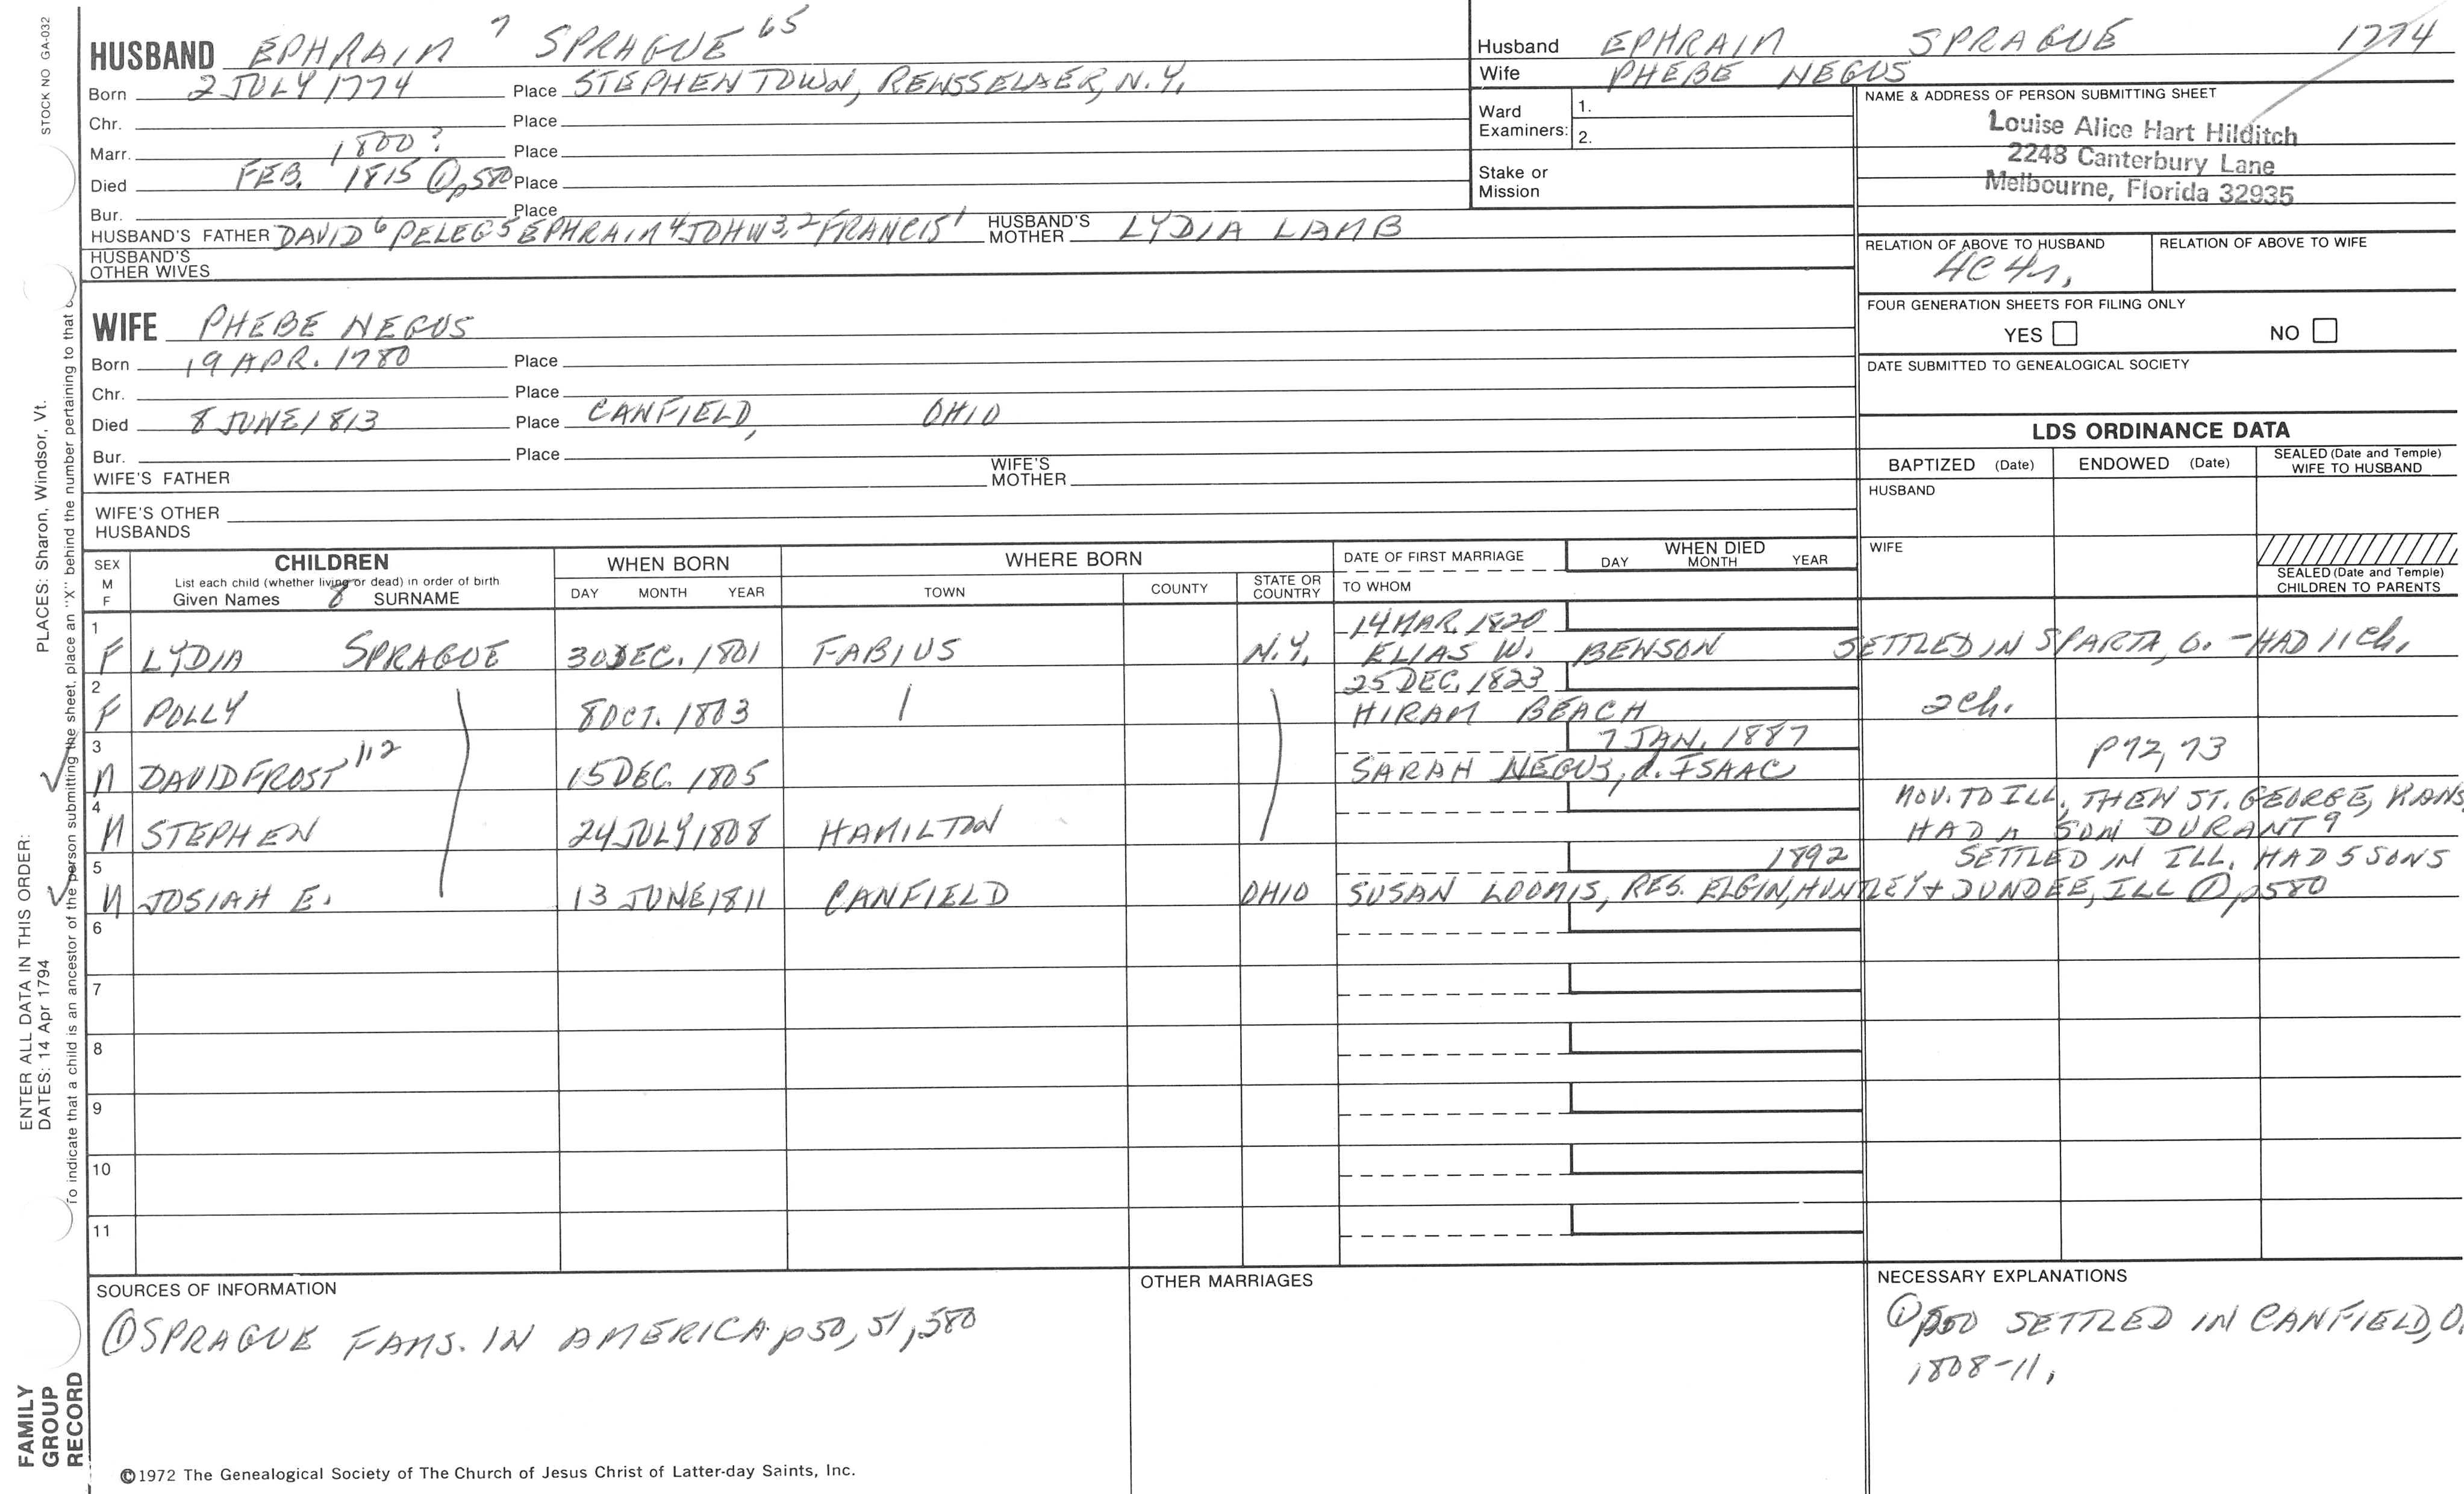 STOCK NO GA-032
HUSBAND EPHRAIM 7 SPRAGUE 65
Born 2 JULY 1774 Place STEPHENTOWN, RENSSELAER, N.Y.
Chr. Place
Marr. 1800? Place
Died FEB. 1815 ① p580 Place
Bur. Place
HUSBAND'S FATHER DAVID 6 PELEG 5 EPHRAIM 4 JOHN 3,2 FRANCIS 1 HUSBAND'S MOTHER LYDIA LAMB
HUSBAND'S OTHER WIVES
WIFE PHEBE NEGUS
Born 19 APR. 1780 Place
Chr. Place
Died 8 JUNE 1813 Place CANFIELD, OHIO
Bur. Place
WIFE'S FATHER WIFE'S MOTHER
WIFE'S OTHER HUSBANDS
Husband EPHRAIM SPRAGUE 1774
Wife PHEBE NEGUS
Ward Examiners: 1.
2.
Stake or Mission
NAME & ADDRESS OF PERSON SUBMITTING SHEET
Louise Alice Hart Hilditch
2248 Canterbury Lane
Melbourne, Florida 32935
RELATION OF ABOVE TO HUSBAND RELATION OF ABOVE TO WIFE
4C 4r,
FOUR GENERATION SHEETS FOR FILING ONLY
YES NO
DATE SUBMITTED TO GENEALOGICAL SOCIETY
LDS ORDINANCE DATA
BAPTIZED (Date) ENDOWED (Date) SEALED (Date and Temple) WIFE TO HUSBAND
HUSBAND
WIFE
SEALED (Date and Temple) CHILDREN TO PARENTS
SEX M F CHILDREN WHEN BORN WHERE BORN DATE OF FIRST MARRIAGE WHEN DIED
List each child (whether living or dead) in order of birth
Given Names 8 SURNAME DAY MONTH YEAR TOWN COUNTY STATE OR COUNTRY TO WHOM DAY MONTH YEAR
1 14 MAR. 1820
F LYDIA SPRAGUE 30 DEC. 1801 FABIUS N.Y. ELIAS W. BENSON SETTLED IN SPARTA, O. - HAD 11 Ch.
2 25 DEC. 1823
F POLLY 8 OCT. 1803 HIRAM BEACH 2 Ch.
3 7 JAN. 1887
M DAVID FROST 112 15 DEC. 1805 SARAH NEGUS, d. ISAAC P72, 73
4 MOV. TO ILL, THEN ST. GEORGE, KANS
M STEPHEN 24 JULY 1808 HAMILTON HAD A SON DURANT 9
5 1892 SETTLED IN ILL. HAD 5 SONS
M JOSIAH E. 13 JUNE 1811 CANFIELD OHIO SUSAN LOOMIS, RES. ELGIN, HUNTLEY + DUNDEE, ILL ① p580
6
7
8
9
10
11
SOURCES OF INFORMATION
① SPRAGUE FAMS. IN AMERICA p50, 51, 580
OTHER MARRIAGES
NECESSARY EXPLANATIONS
① p50 SETTLED IN CANFIELD, O.
1808-11.
©1972 The Genealogical Society of The Church of Jesus Christ of Latter-day Saints, Inc.
ENTER ALL DATA IN THIS ORDER:
DATES: 14 Apr 1794 PLACES: Sharon, Windsor, Vt.
To indicate that a child is an ancestor of the person submitting the sheet, place an "X" behind the number pertaining to that
FAMILY GROUP RECORD